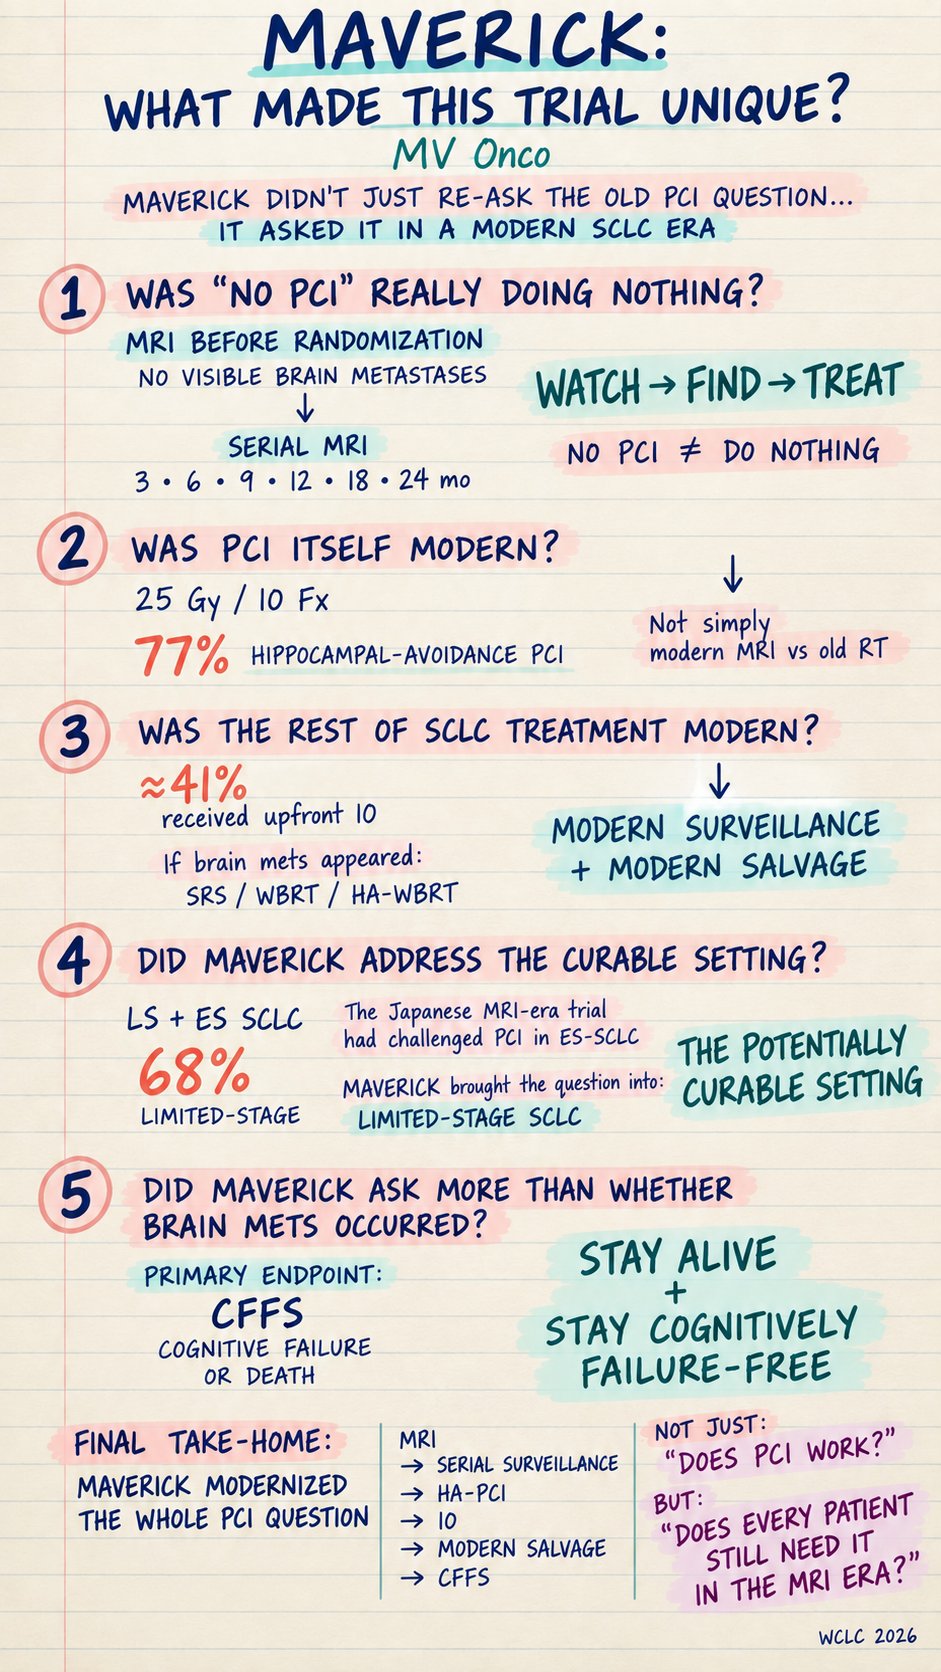 MAVERICK:
WHAT MADE THIS TRIAL UNIQUE?
MV Onco
MAVERICK DIDN'T JUST RE-ASK THE OLD PCI QUESTION...
IT ASKED IT IN A MODERN SCLC ERA
1 WAS "NO PCI" REALLY DOING NOTHING?
MRI BEFORE RANDOMIZATION
NO VISIBLE BRAIN METASTASES
↓
SERIAL MRI
3 • 6 • 9 • 12 • 18 • 24 mo
WATCH → FIND → TREAT
NO PCI ≠ DO NOTHING
2 WAS PCI ITSELF MODERN?
25 Gy / 10 Fx
77% HIPPOCAMPAL-AVOIDANCE PCI
↓
Not simply
modern MRI vs old RT
3 WAS THE REST OF SCLC TREATMENT MODERN?
≈41%
received upfront IO
If brain mets appeared:
SRS / WBRT / HA-WBRT
↓
MODERN SURVEILLANCE
+ MODERN SALVAGE
4 DID MAVERICK ADDRESS THE CURABLE SETTING?
LS + ES SCLC
68%
LIMITED-STAGE
The Japanese MRI-era trial
had challenged PCI in ES-SCLC
MAVERICK brought the question into:
LIMITED-STAGE SCLC
THE POTENTIALLY
CURABLE SETTING
5 DID MAVERICK ASK MORE THAN WHETHER
BRAIN METS OCCURRED?
PRIMARY ENDPOINT:
CFFS
COGNITIVE FAILURE
OR DEATH
STAY ALIVE
+
STAY COGNITIVELY
FAILURE-FREE
FINAL TAKE-HOME:
MAVERICK MODERNIZED
THE WHOLE PCI QUESTION
MRI
→ SERIAL SURVEILLANCE
→ HA-PCI
→ IO
→ MODERN SALVAGE
→ CFFS
NOT JUST:
"DOES PCI WORK?"
BUT:
"DOES EVERY PATIENT
STILL NEED IT
IN THE MRI ERA?"
WCLC 2026